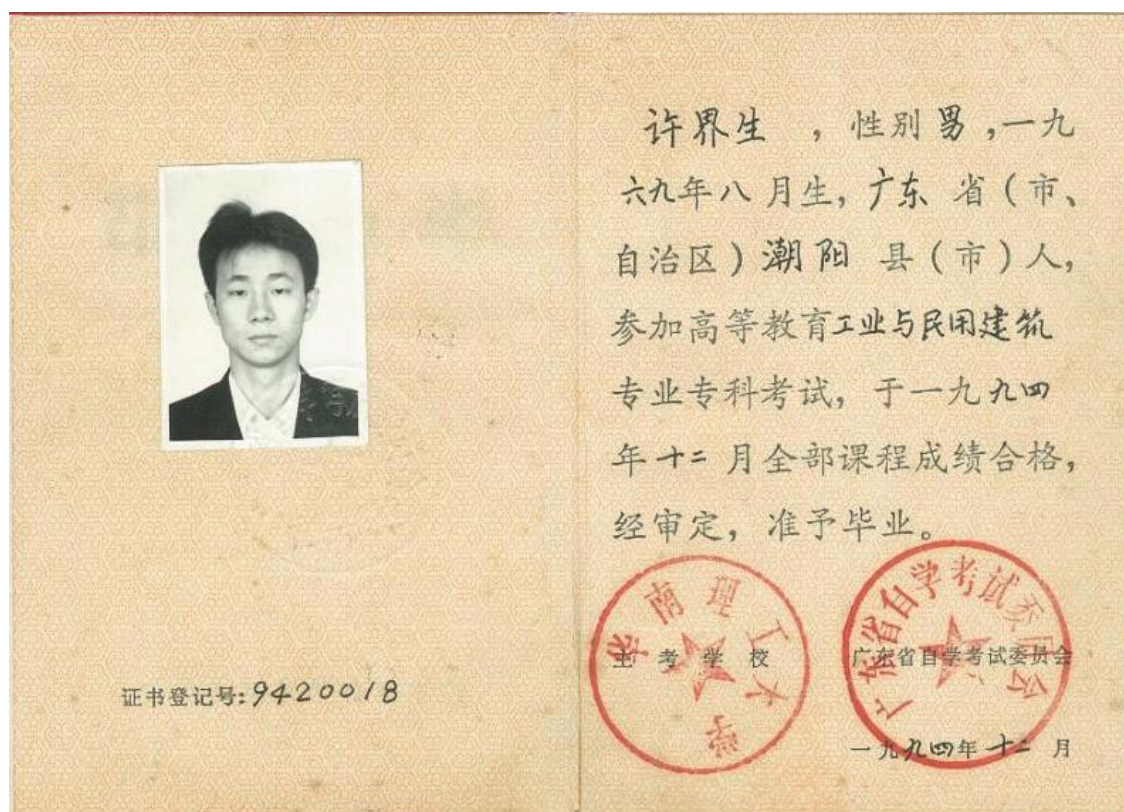 证书登记号:9420018
许界生 , 性别男,一九
六九年八月生, 广东 省(市、
自治区) 潮阳 县(市)人,
参加高等教育工业与民用建筑
专业专科考试, 于一九九四
年十二月全部课程成绩合格,
经审定, 准予毕业。
华南理工大学
主考学校
广东省自学考试委员会
广东省自学考试委员会
一九九四年十二月